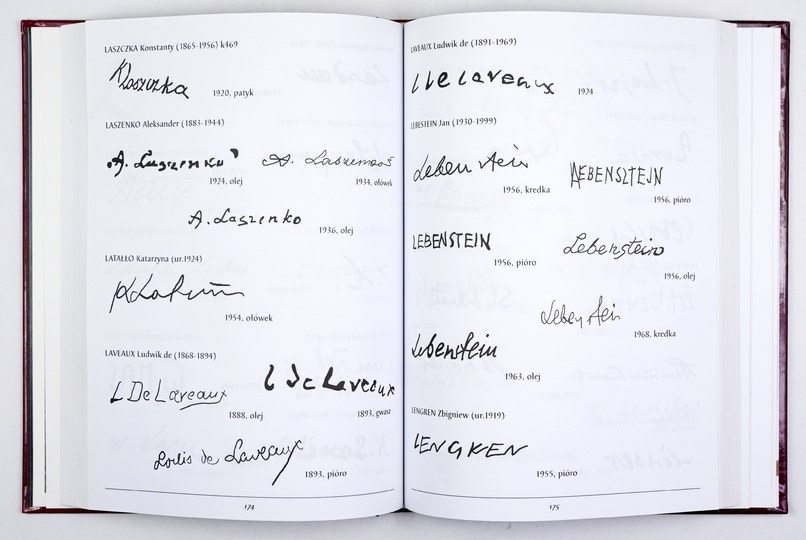 LASZCZKA Konstanty (1865-1956) k469
KLaszczka
1920, patyk
LASZENKO Aleksander (1883-1944)
A. Laszenko
1924, olej
A. Laszenko
1934, ołówek
A. Laszenko
1936, olej
LATAŁŁO Katarzyna (ur.1924)
1954, ołówek
LAVEAUX Ludwik de (1868-1894)
L De Laveaux
1888, olej
L De Laveaux
1893, gwasz
Louis de Laveaux
1893, pióro
174
LAVEAUX Ludwik de (1891-1969)
L de Laveaux
1924
LEBESTEIN Jan (1930-1999)
Lebenstein
1956, kredka
LEBENSZTEJN
1956, pióro
LEBENSTEIN
1956, pióro
Lebenstein
1956, olej
Lebenstein
1968, kredka
Lebenstein
1963, olej
LENGREN Zbigniew (ur.1919)
LENGREN
1955, pióro
175